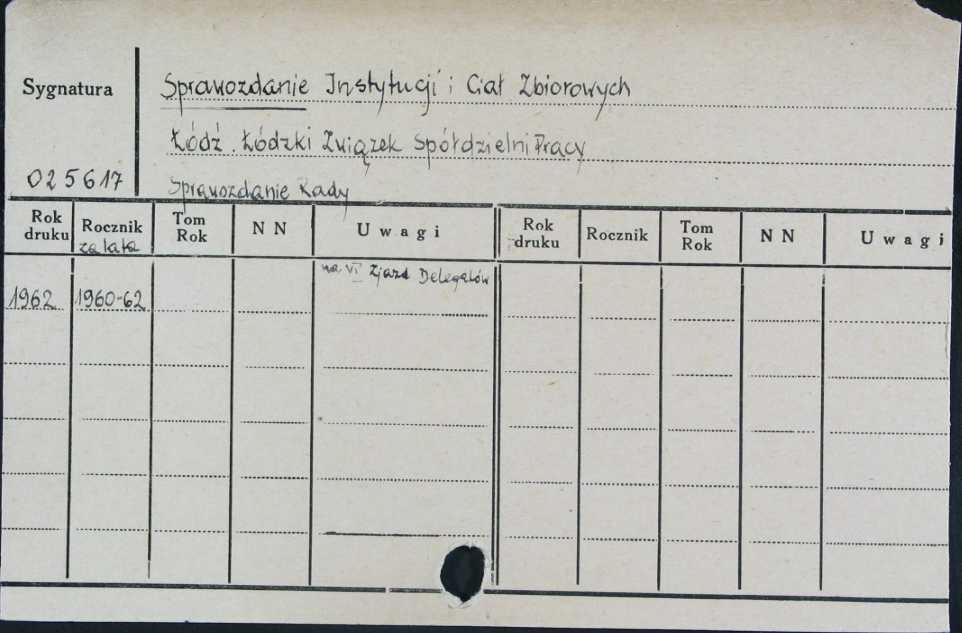 Sygnatura
Sprawozdanie Instytucji i Ciał Zbiorowych
Łódź. Łódzki Związek Spółdzielni Pracy
025617
Sprawozdanie Rady
Rok druku Rocznik za lata Tom Rok N N Uwagi Rok druku Rocznik Tom Rok N N Uwagi
na VI Zjazd Delegatów
1962 1960-62